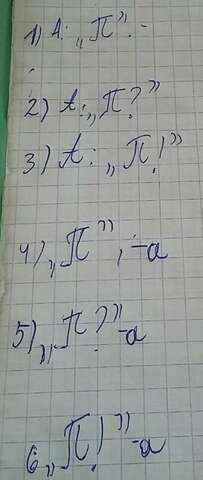 1) А: „П”. -
2) А: „П?”
3) А: „П!”
4) „П”, -а
5) „П?” -а
6 „П!” -а